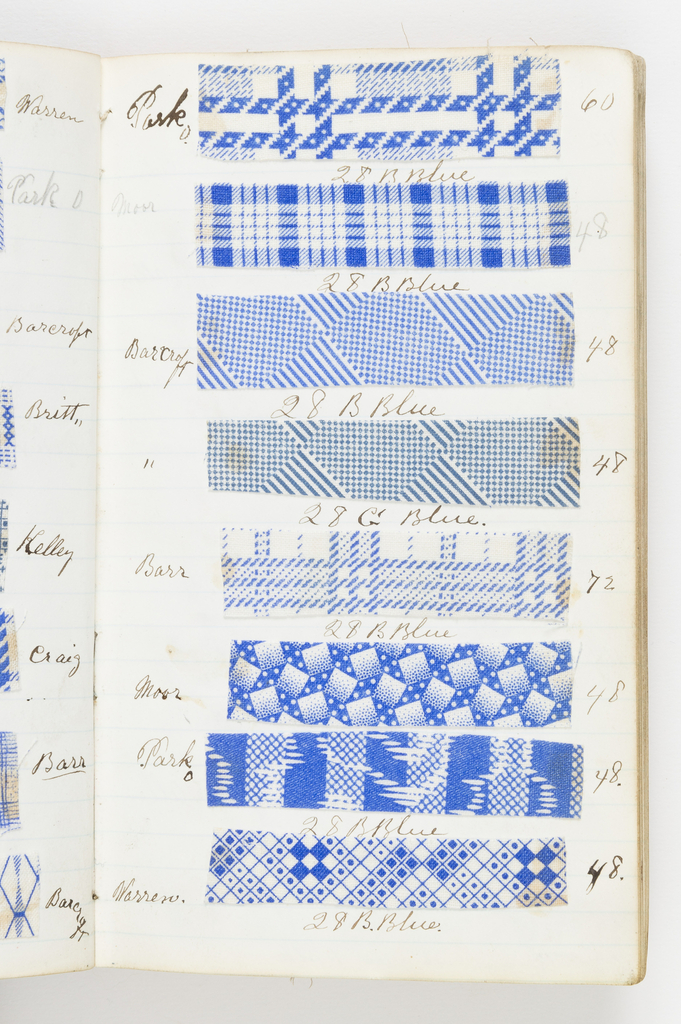 Warren
Park D
Barcroft
Britt"
Kelley
Craig
Barr
Barcroft
Park D. 60
28 B Blue
Moor 48
28 B Blue
Barcroft 48
28 B Blue
" 48
28 C Blue.
Barr 72
28 B Blue
Moor 48
Park D 48.
28 B Blue
Warren. 48.
28 B. Blue.